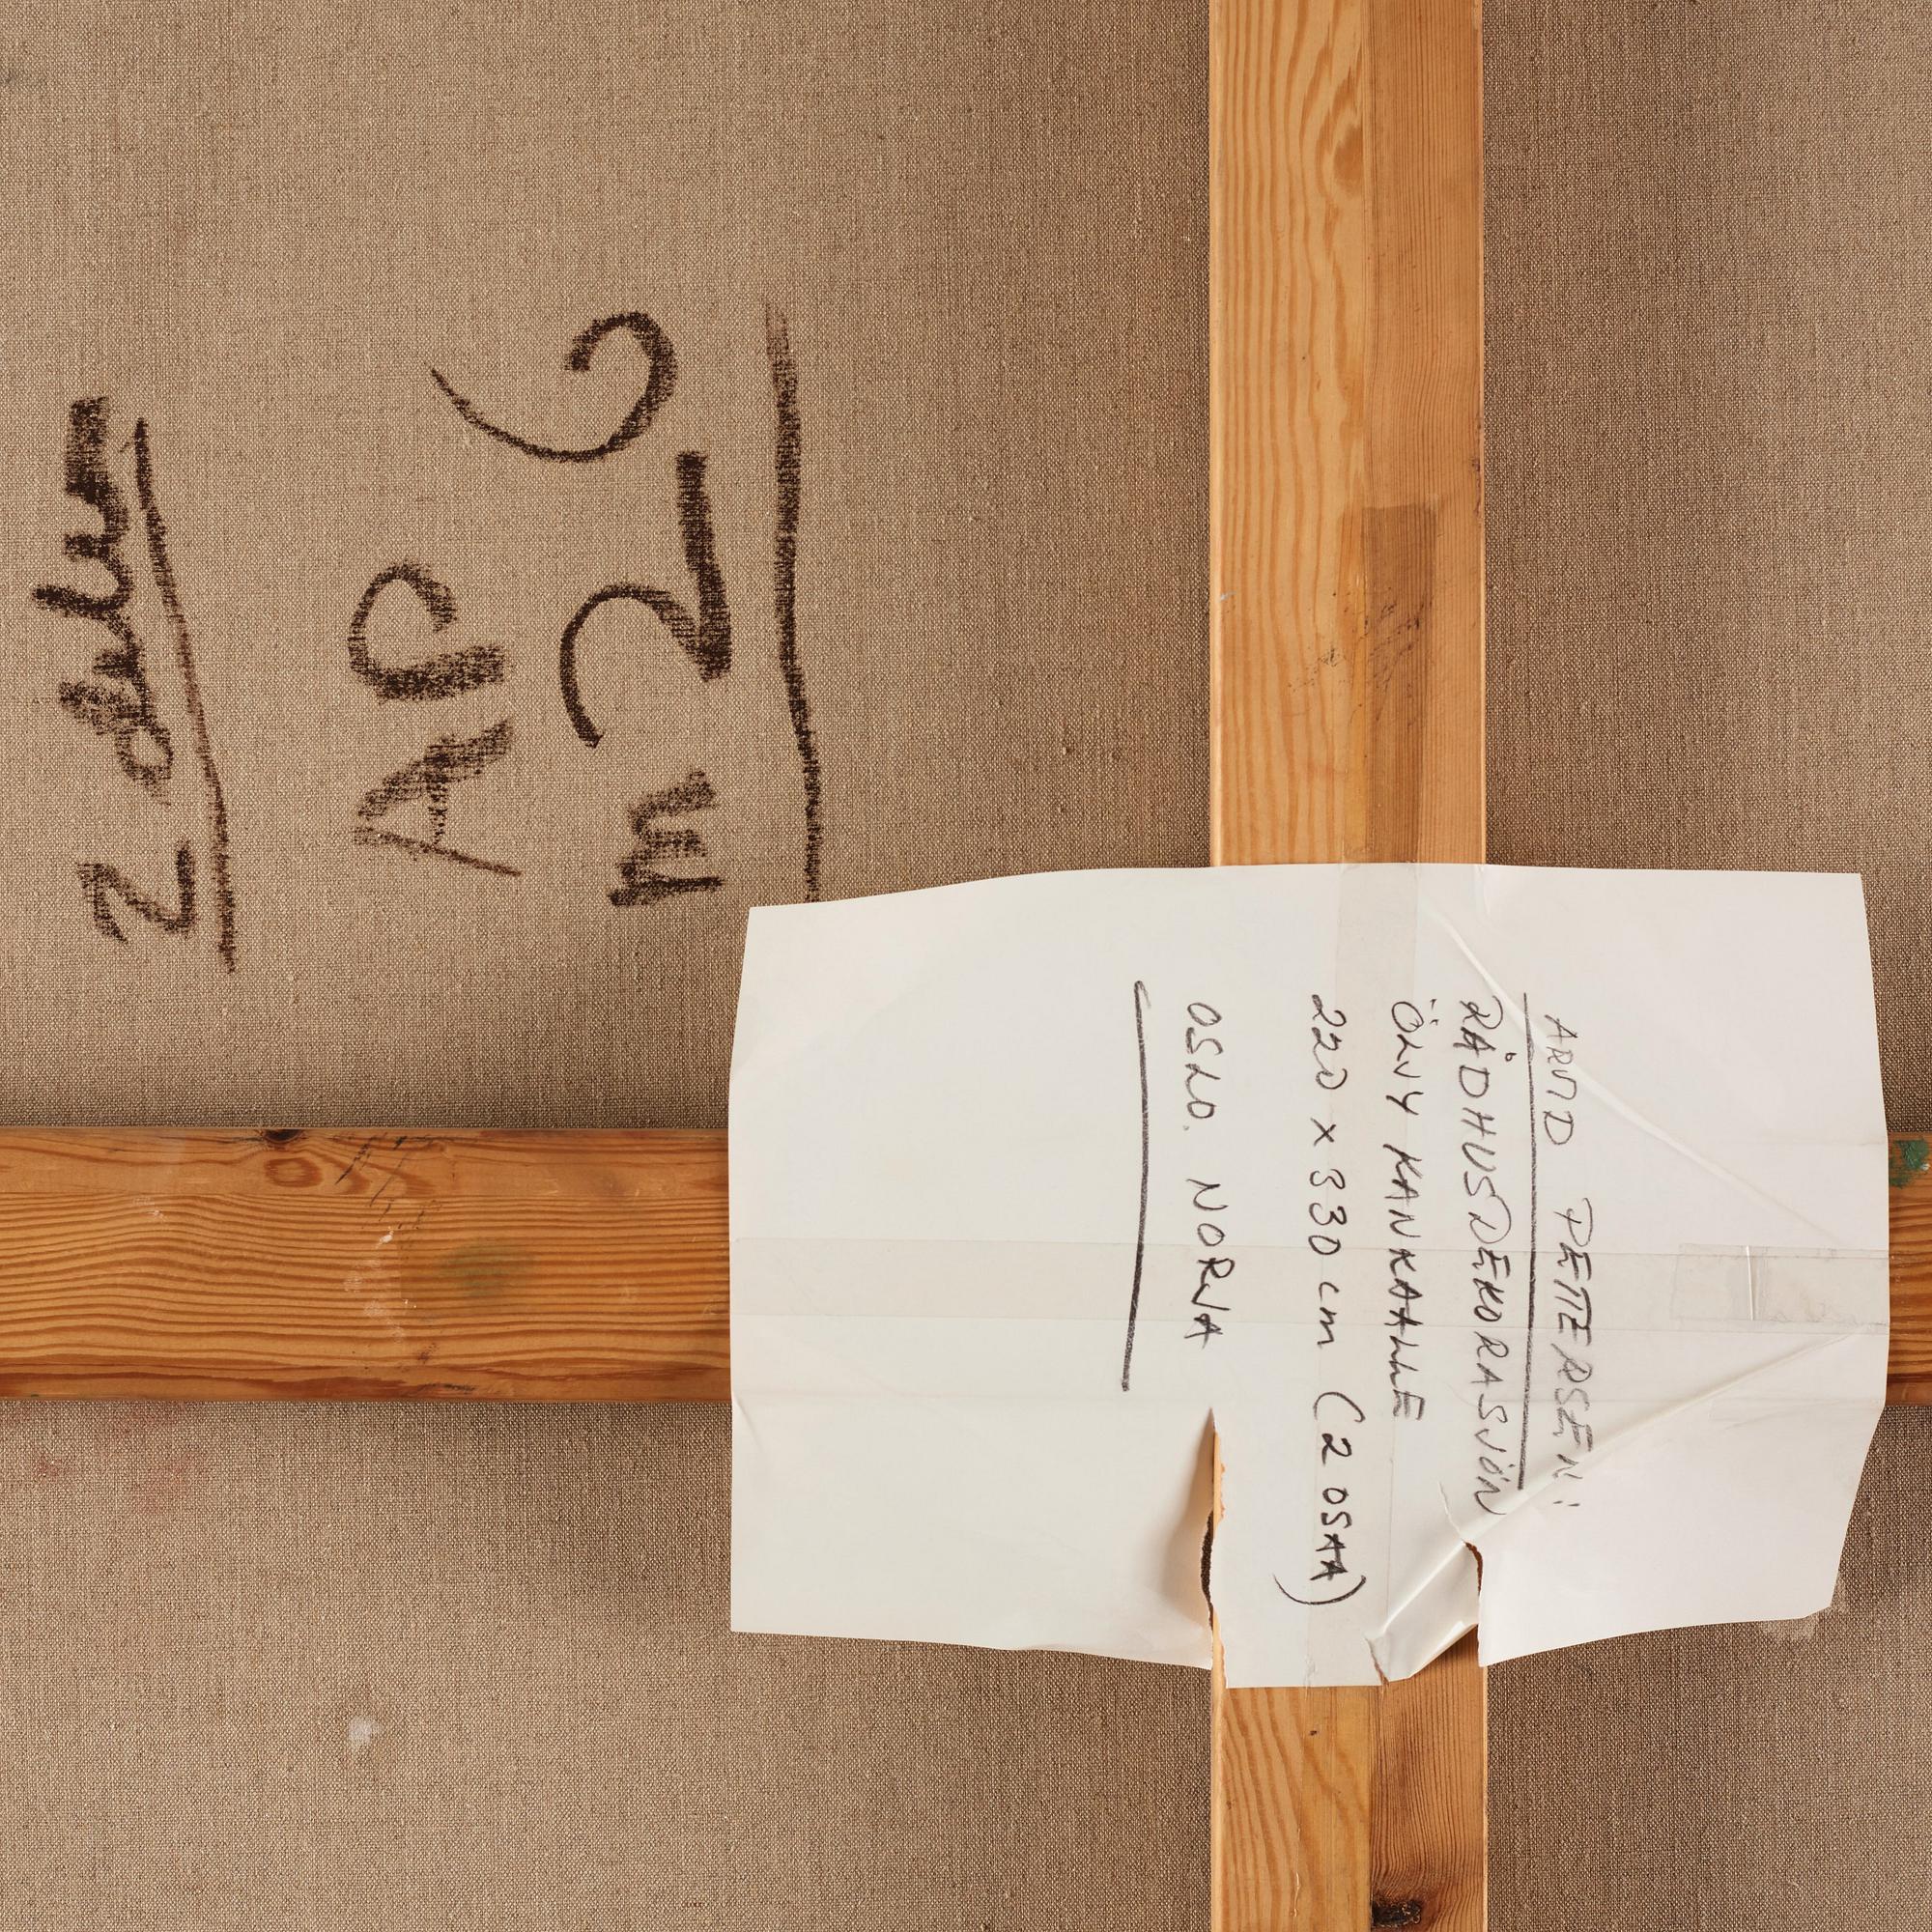 2 delur
AP
m 26
ARVID PETTERSEN:
RÅDHUSDEKORASJÖN
ÖLJY KANKAALLE
220 x 330 cm (2 OSAA)
OSLO. NORJA